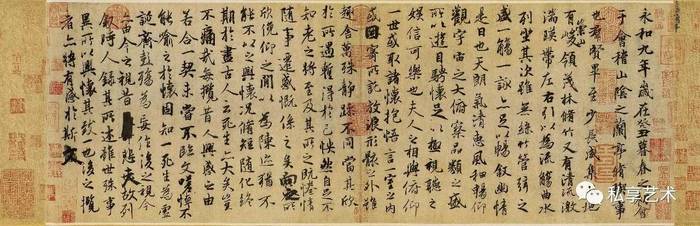 永和九年歲在癸丑暮春之初會
于會稽山陰之蘭亭脩禊事
也羣賢畢至少長咸集此地
有崇山峻領茂林脩竹又有清流激
湍暎帶左右引以為流觴曲水
列坐其次雖無絲竹管弦之
盛一觴一詠亦足以暢敘幽情
是日也天朗氣清惠風和暢仰
觀宇宙之大俯察品類之盛
所以遊目騁懷足以極視聽之
娛信可樂也夫人之相與俯仰
一世或取諸懷抱悟言一室之內
或因寄所託放浪形骸之外雖
趣舍萬殊靜躁不同當其欣
於所遇暫得於己怏然自足不
知老之將至及其所之既惓情
隨事遷感慨係之矣向之所
欣俛仰之閒以為陳迹猶不
能不以之興懷況脩短隨化終
期於盡古人云死生亦大矣豈
不痛哉每攬昔人興感之由
若合一契未嘗不臨文嗟悼不
能喻之於懷固知一死生為虛
誕齊彭殤為妄作後之視今
亦由今之視昔悲夫故列
敘時人錄其所述雖世殊事
異所以興懷其致一也後之攬
者亦將有感於斯文
私享艺术